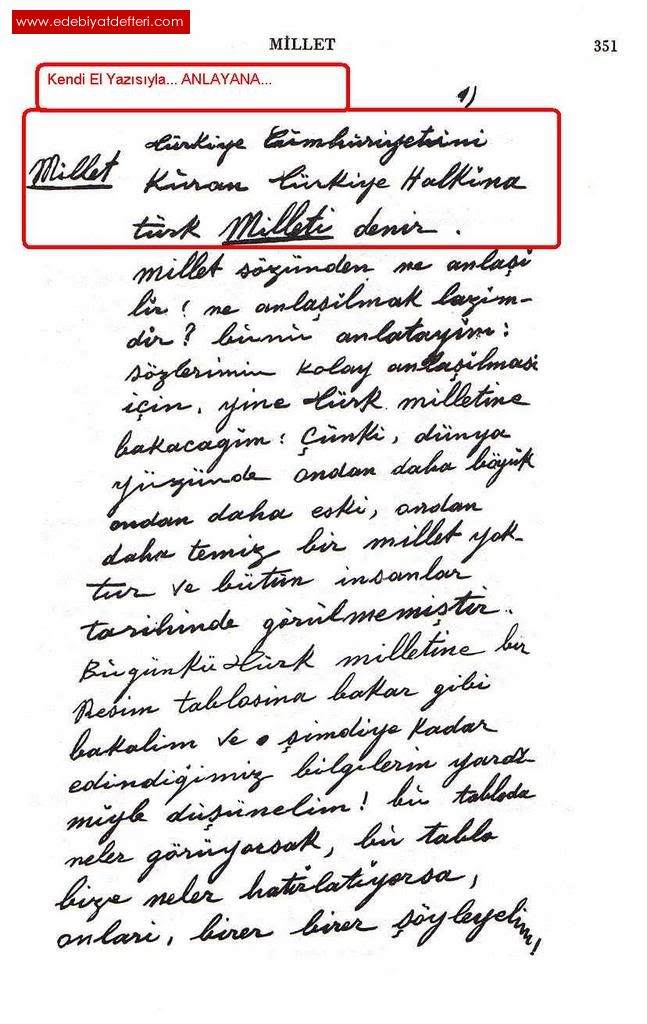 www.edebiyatdefteri.com
MİLLET 351
Kendi El Yazısıyla... ANLAYANA...
1)
Millet Türkiye Cümhuriyetini
Kuran Türkiye Halkına
türk Milleti denir.
millet sözünden ne anlaşi
lir; ne anlaşilmak lazim-
dir? bunu anlatayim:
sözlerimin kolay anlaşilmasi
için, yine Türk milletine
bakacağim: Çünki, dünya
yüzünde ondan daha böyük
ondan daha eski, ondan
daha temiz bir millet yok-
tur ve bütün insanlar
tarihinde görülmemiştir.
Bu günkü Türk milletine bir
Resim tablosina bakar gibi
bakalim ve şimdiye kadar
edindiğimiz bilgilerin yardı-
miyle düşünelim! bu tabloda
neler görüyorsak, bu tablo
bize neler hatırlatiyorsa,
onlari, birer birer söyleyelim!